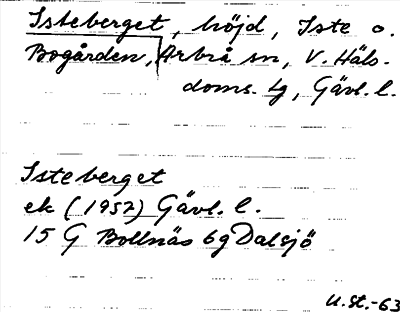 Isteberget, höjd, Iste o.
Bogården, Arbrå sn, V. Häls.
doms. tg, Gävl. l.
Isteberget
ek (1952) Gävl. l.
15 G Bollnäs 6g Dalsjö
U.St.-63